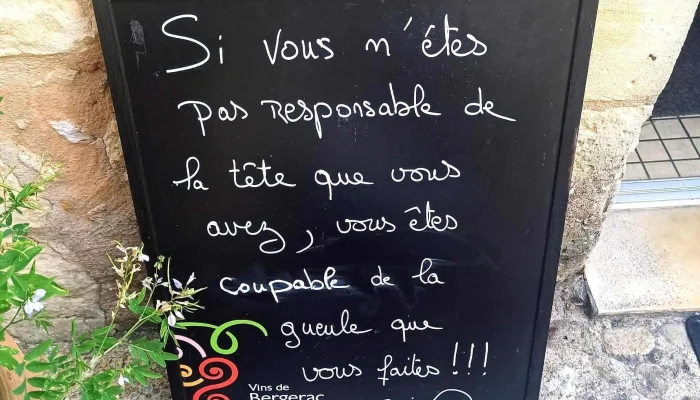 Si vous n'êtes
pas responsable de
la tête que vous
avez, vous êtes
coupable de la
gueule que
vous faites !!!
Vins de
Bergerac